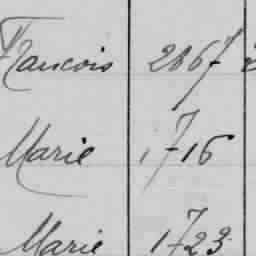 Francois 2867
Marie 1716
Marie 1723